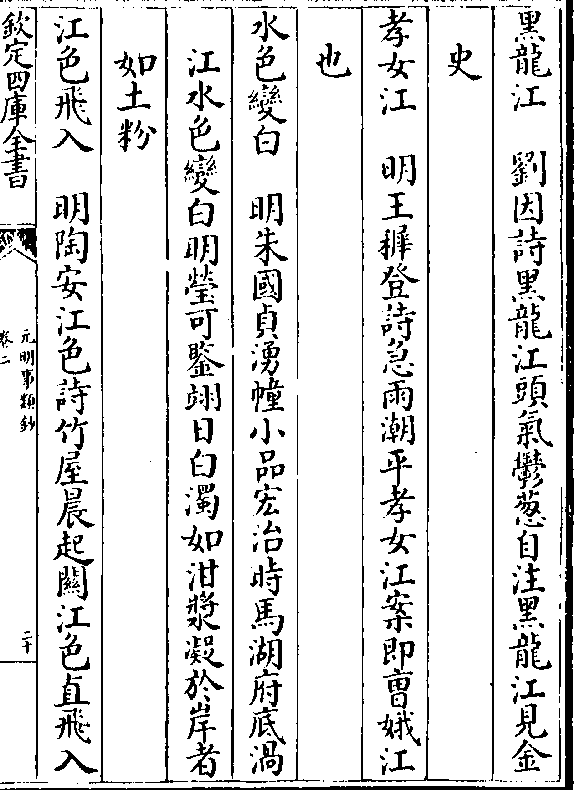 黑龍江　劉因詩黑龍江頭氣鬱葱自注黑龍江見金
史
孝女江　明王穉登詩急雨潮平孝女江案即曹娥江
也
水色變白　明朱國貞湧幢小品宏治時馬湖府底渦
江水色變白明瑩可鑒翊日白濁如泔漿凝於岸者
如土粉
江色飛入　明陶安江色詩竹屋晨起關江色直飛入
欽定四庫全書
元明事類鈔
卷二
二十